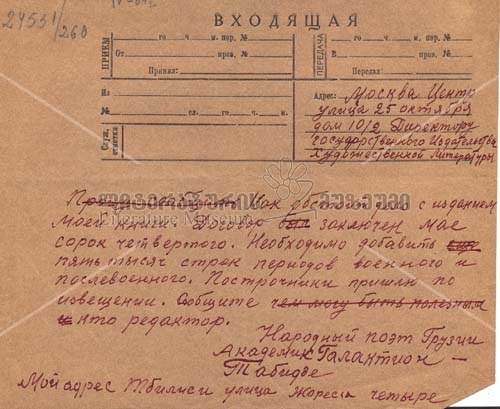 24551/260
ВХОДЯЩАЯ
ПРИЕМ
го ч. м. пер. №
От пров. №
Принял:
ПЕРЕДАЧА
го ч. м. пер. №
В пров. №
Передал:
Из
№ сл. го ч. м.
Служ. отметки
Адрес: Москва Центр
улица 25 октября
дом 10/2 Директору
государственного Издательства
Художественной Литературы
Literature Museum
Как обстоит дело с изданием
моей книги. Договор был заключен мае
сорок четвертого. Необходимо добавить еще
пять тысяч строк периодов военного и
послевоенного. Построчники пришлю по
извещении. Сообщите чем могу быть полезным
и кто редактор.
Народный поэт Грузии
Академик Галактион
Табидзе
Мой адрес Тбилиси улица Жореса четыре